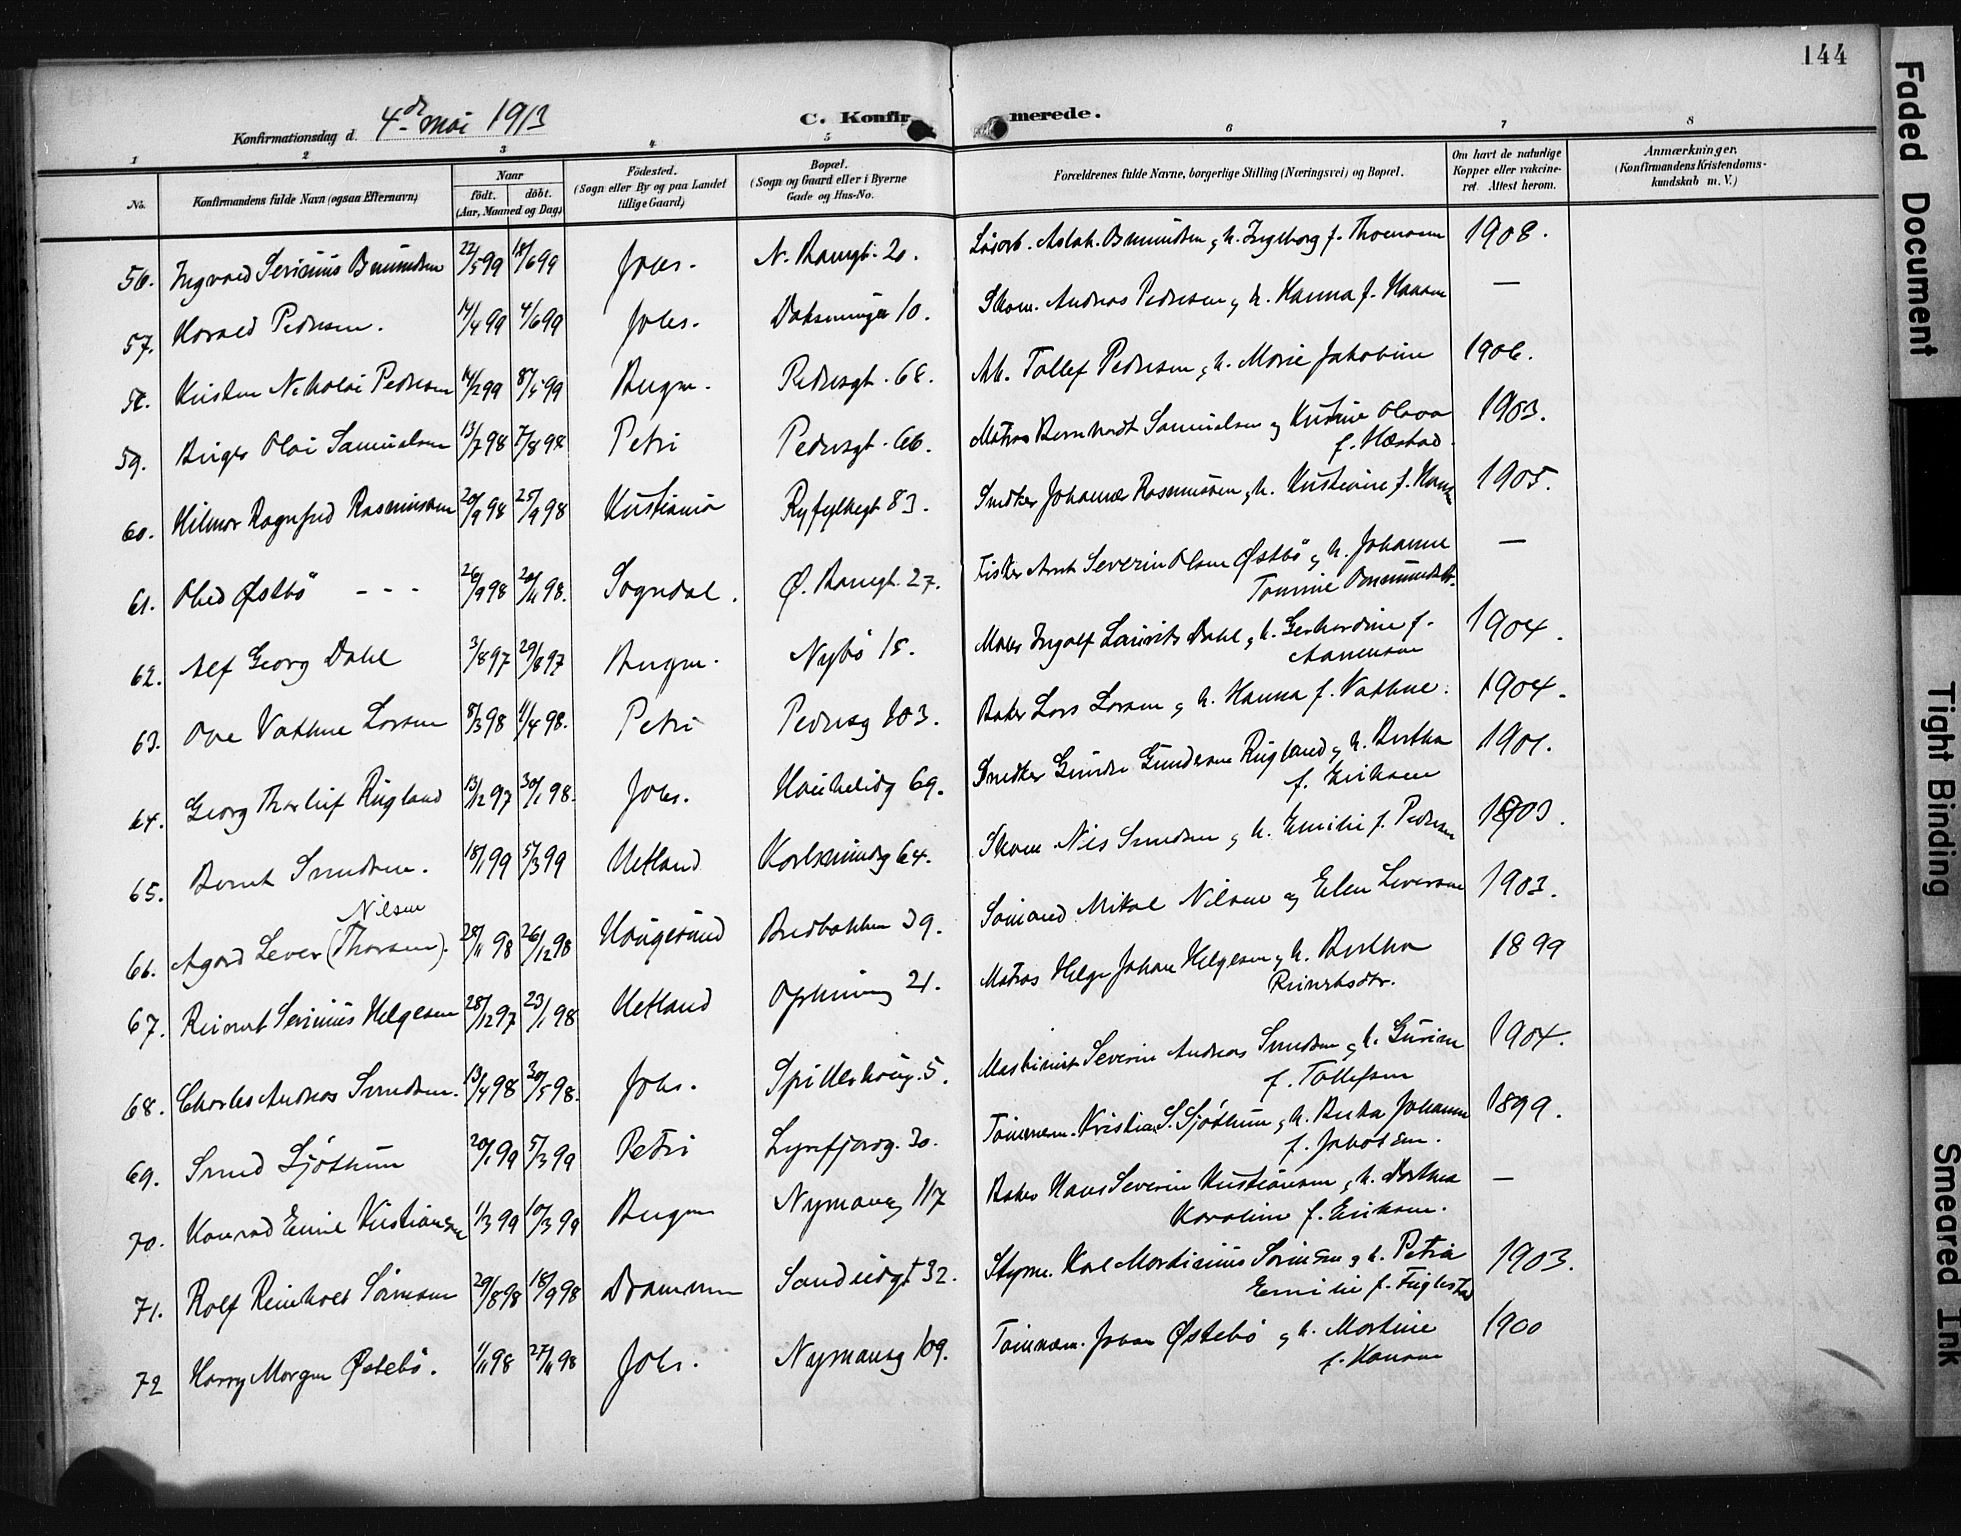 144
C. Konfirmerede.
Konfirmationsdag d. 4de mai 1913
1 2 3 4 5 6 7 8
No.
Konfirmandens fulde Navn (ogsaa Efternavn)
Naar
født. døbt.
(Aar, Maaned og Dag)
Fødested.
(Sogn eller By og paa Landet
tillige Gaard)
Bopæl.
(Sogn og Gaard eller i Byerne
Gade og Hus-No.
Forældrenes fulde Navne, borgerlige Stilling (Næringsvei) og Bopæl.
Om havt de naturlige
Kopper eller vakcine-
ret. Attest herom.
Anmærkninger.
(Konfirmandens Kristendoms-
kundskab m. V.)
56. Ingvald Serinius Osmundsen 22/5 99 18/6 99 Johs. 20. Aslak Osmundsen og h. Ingeborg f. Thomsen 1908.
57. Harald Pedersen. 14/4 99 4/6 99 Johs. 10. Skom. Andreas Pedersen og h. Hanna f. Hansen —
58. Kristen Nikolai Pedersen 14/2 99 8/5 99 Bergen. Pedersgt. 68. Arb. Tollef Pedersen og h. Marie Jakobine 1906.
59. Birger Olai Samuelsen 13/7 98 7/8 98 Petri Pedersgt. 66. Matros Bernhardt Samuelsen og Kristine Olava
f. Næstad. 1903.
60. Hilmar Ragnfred Rasmussen 20/9 98 25/9 98 Kristiania Ryfylkegt 83. Snedker Johannes Rasmussen og h. Kristiane f. Hansen 1905.
61. Obed Østbø - - - 26/9 98 20/11 98. Sogndal. Ø. Banegt. 27. Fisker Arnt Severin Olsen Østbø og h. Johanne
Tomine Osmundsdtr. —
62. Alf Georg Dahl 3/8 97 29/8 97 Bergen. Nybø 15. Maler Ingolf Laurits Dahl og h. Gerhardine f.
Aanensen 1904.
63. Ove Vathne Larsen 8/3 98 11/4 98. Petri Pedersg 103. Baker Lars Larsen og h. Hanna f. Vathne. 1904.
64. Georg Thorleif Rugland 13/12 97 30/1 98. Johs. Haukelidg 69. Snedker Gunder Gundersen Rugland og h. Bertha
f. Eriksen 1901.
65. Bernt Svendsen. 18/1 99 5/3 99 Hetland Karlsmindeg 64. Skom. Nils Svendsen og h. Emilie f. Pedersen 1903.
66. Agard Lever (Thorsen). Nilsen 28/11 98 26/12 98 Haugesund Bredbakken 39. Sømand Mikal Nilsen og Elen Leversen 1903.
67. Reinert Serinius Helgesen 28/12 97 23/1 98 Hetland 21. Matros Helge Johan Helgesen og h. Bertha
Reinertsdtr. 1899
68. Charles Andreas Svendsen. 13/4 98 30/5 98. Johs. Spilderhaug. 5. Maskinist Severin Andreas Svendsen og h. Gurine
f. Tollefsen 1904.
69. Svend Sjøthun 20/1 99 5/3 99 Petri Lysefjordg. 30. Tømmerm. Kristian S. Sjøthun og h. Berta Johanne
f. Jakobsen. 1899.
70. Konrad Emil Kristiansen 1/3 99 10/3 99 Bergen Nymansg 117 Baker Hans Severin Kristiansen og h. Dorthea
Karoline f. Eriksen. —
71. Rolf Reinholt Sørensen 29/8 98 18/9 98 Drammen Sandeidgt 32. Styrm. Karl Mardinius Sørensen og h. Petra
Emilie f. Fuglestad 1903.
72 Harry Morgen Østebø. 1/11 98 27/11 98 Johs. Nymansg 109. Tømmerm. Johan Østebø og h. Martine
f. Hansen 1900
Faded Document
Tight Binding
Smeared Ink